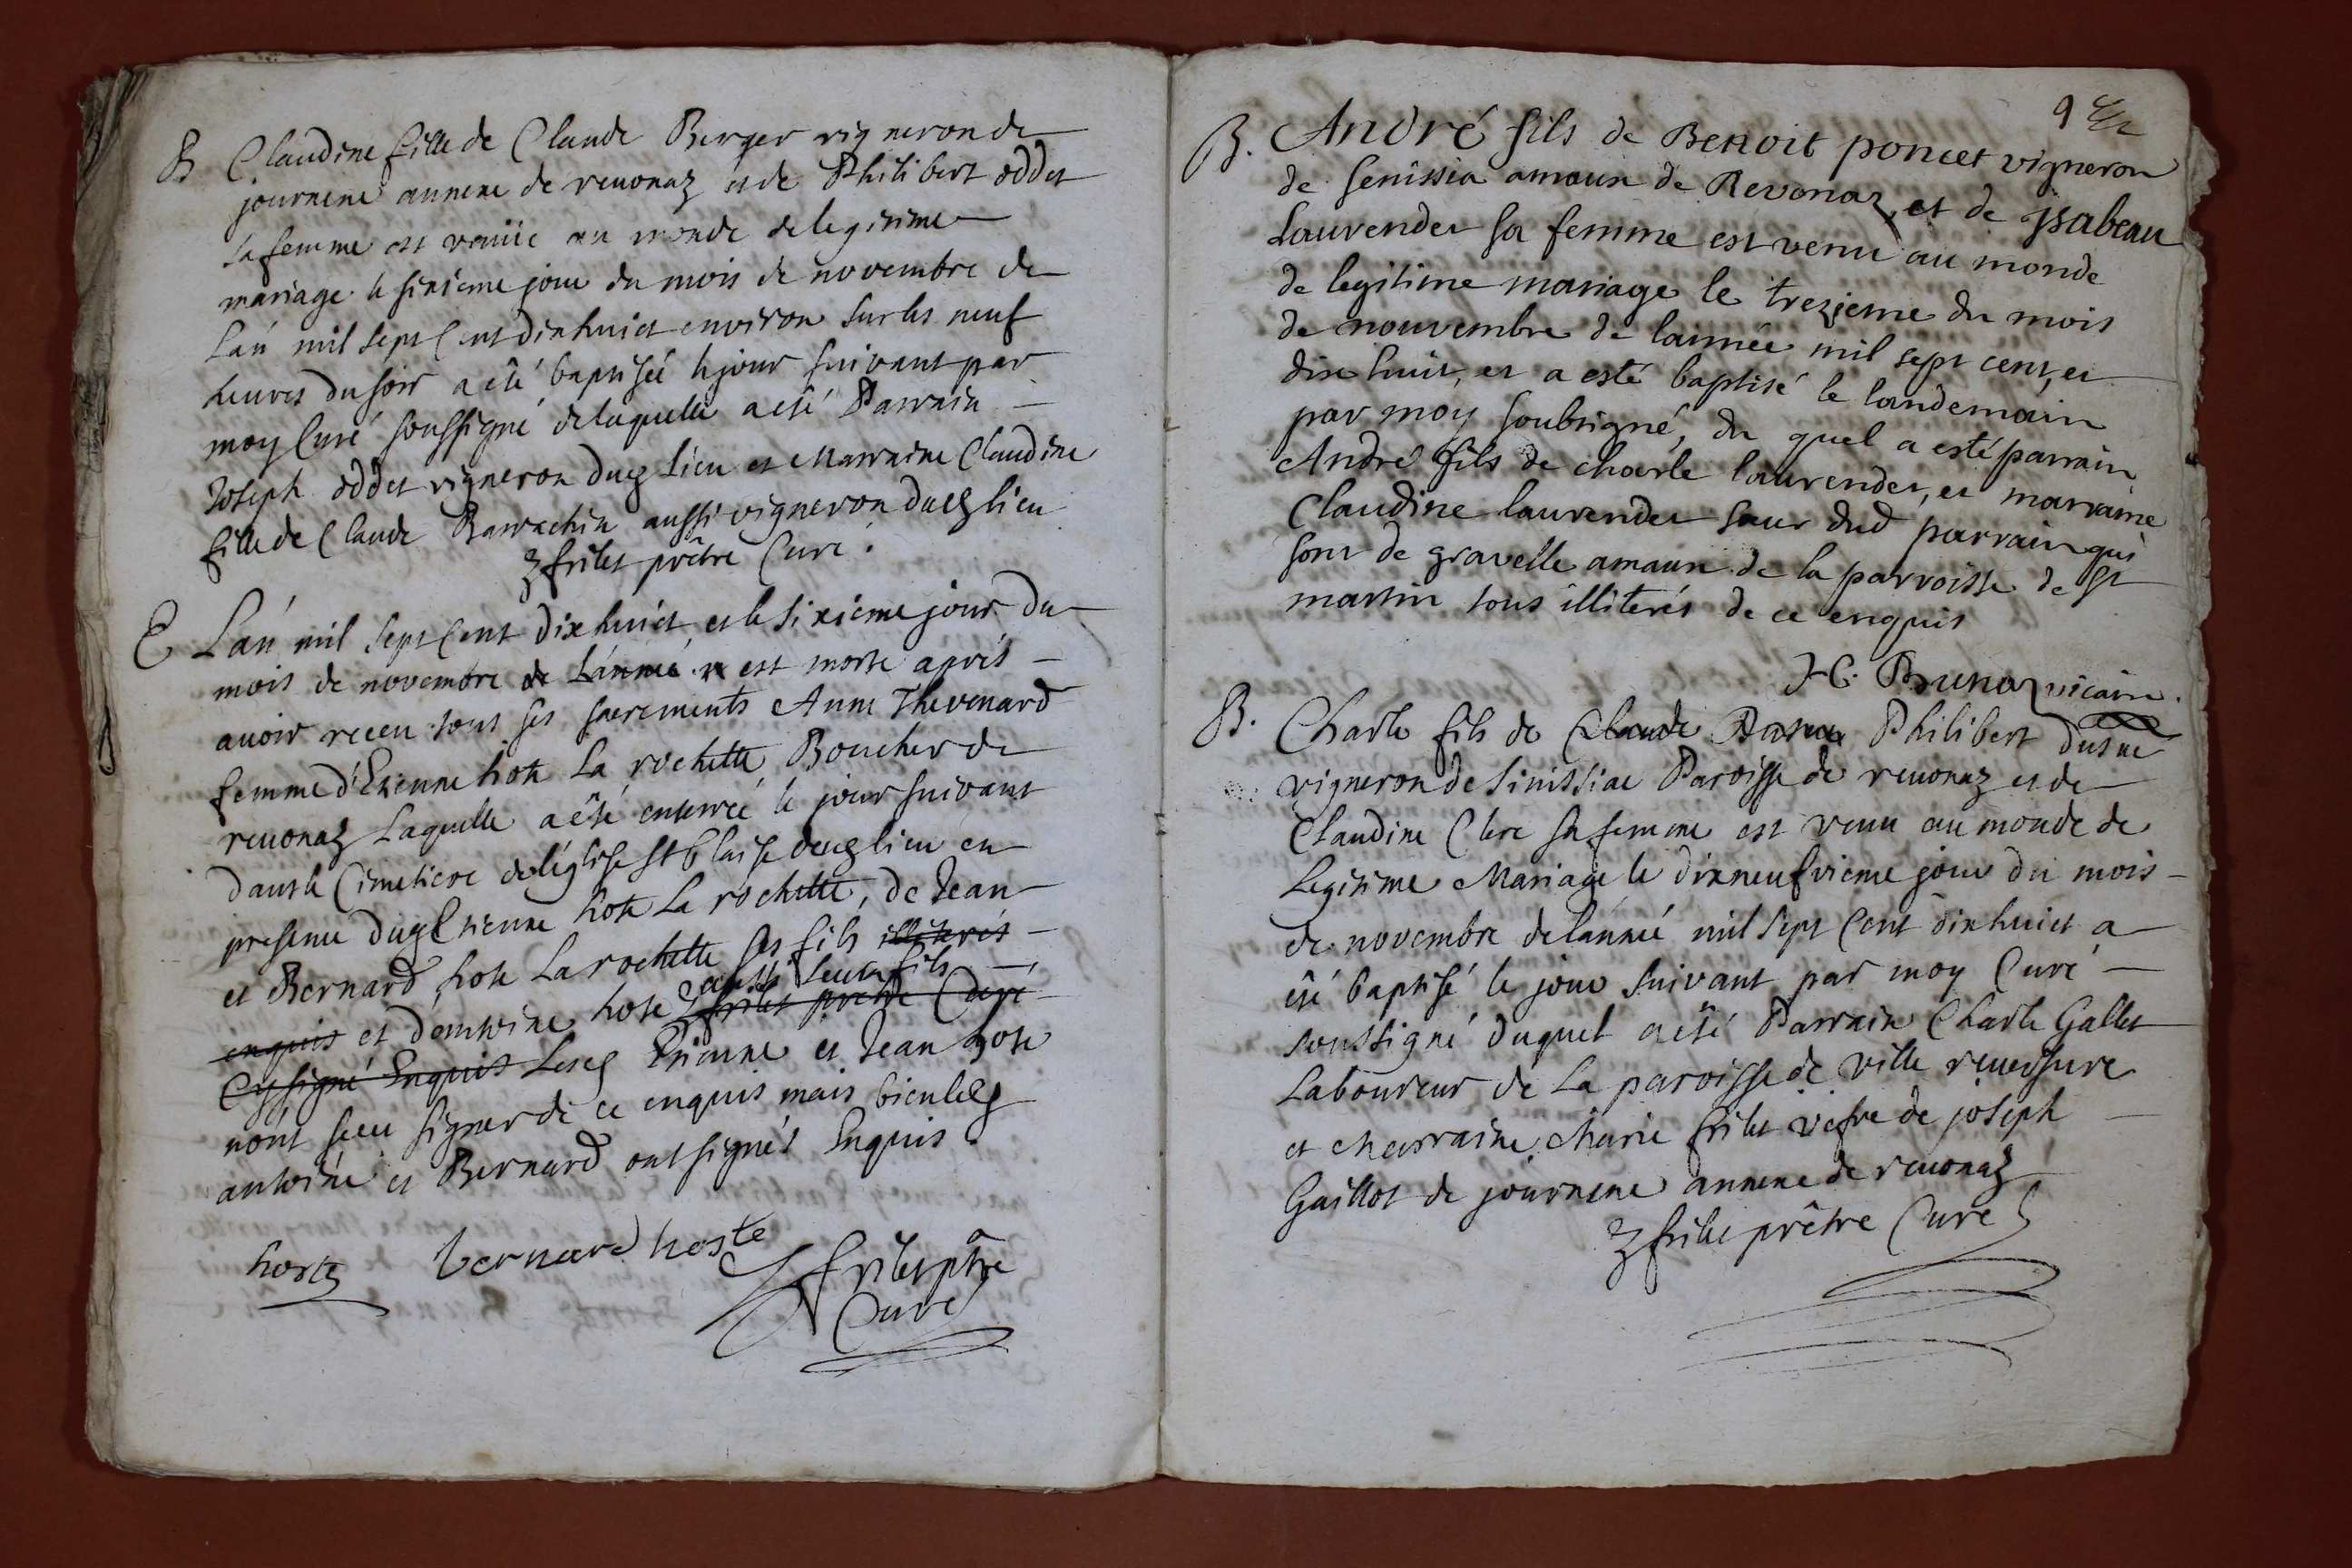 B Claudine fille de Claude Berger vigneron de
journene annexe de revonaz et de Philibert oddet
sa femme est venüe au monde de legitime
mariage le sixieme jour du mois de novembre de
L'an mil sept Cent dixhuict environ sur les neuf
heures du soir a esté baptisée le jour suivant par
moy Curé soussigné de laquelle a esté Parrain
Joseph oddet vigneron dud lieu et Marraine Claudine
fille de Claude Barrachin aussi vigneron dud lieu
frilet prêtre Curé.
E L'an mil sept Cent dix huict et le sixieme jour du
mois de novembre de L'année est morte aprés
avoir receu tous ses sacrements Anne Thevenard
femme d'Etienne hote La rochette Boucher de
revonaz Laquelle a esté enterrée le jour suivant
dans le Cimetiere de léglise St Blaise dud lieu en
presence dud Etienne hote La rochette, de Jean
et Bernard hote La rochette ses fils illiterés
aussi leur fils
enquis et d'antoine hote frilet prêtre Curé
Cysigné Enquis Lesd Etienne et Jean hote
nont sceu signer de ce enquis mais bien lesd
antoine et Bernard ont signés Enquis.
hoste bernard hoste
frilet ptre
Curé
9
B. André fils de Benoit poncet vigneron
de senissia amaun de Revonaz, et de jsabeau
Laurendet sa femme est venu au monde
de legitime mariage le trezjeme du mois
de nouvembre de lannée mil sept cent, et
dix huit, et a esté baptisé le landemain
par moy soubsigné, du quel a esté parrain
André fils de charle laurendet, et marraine
Claudine laurendet saur dud parrain qui
sont de gravelle amaun de la parroisse de St
martin tous illiterés de ce enquis
Brunaz vicaire.
B. Charle fils de Claude Philibert dusne
vigneron de sinissiae Paroisse de revonaz et de
Claudine Clere sa femme est venu au monde de
Legitime Mariage le dixneufvieme jour du mois
de novembre de lannée mil sept Cent dixhuict a
été baptisé le jour suivant par moy Curé
soussigné duquel a esté Parrain Charle Gallet
Laboureur de La paroisse de ville reversure
et Marraine Marie frilet vefve de joseph
Gaillot de journene annexe de revonaz
frilet prêtre Curé